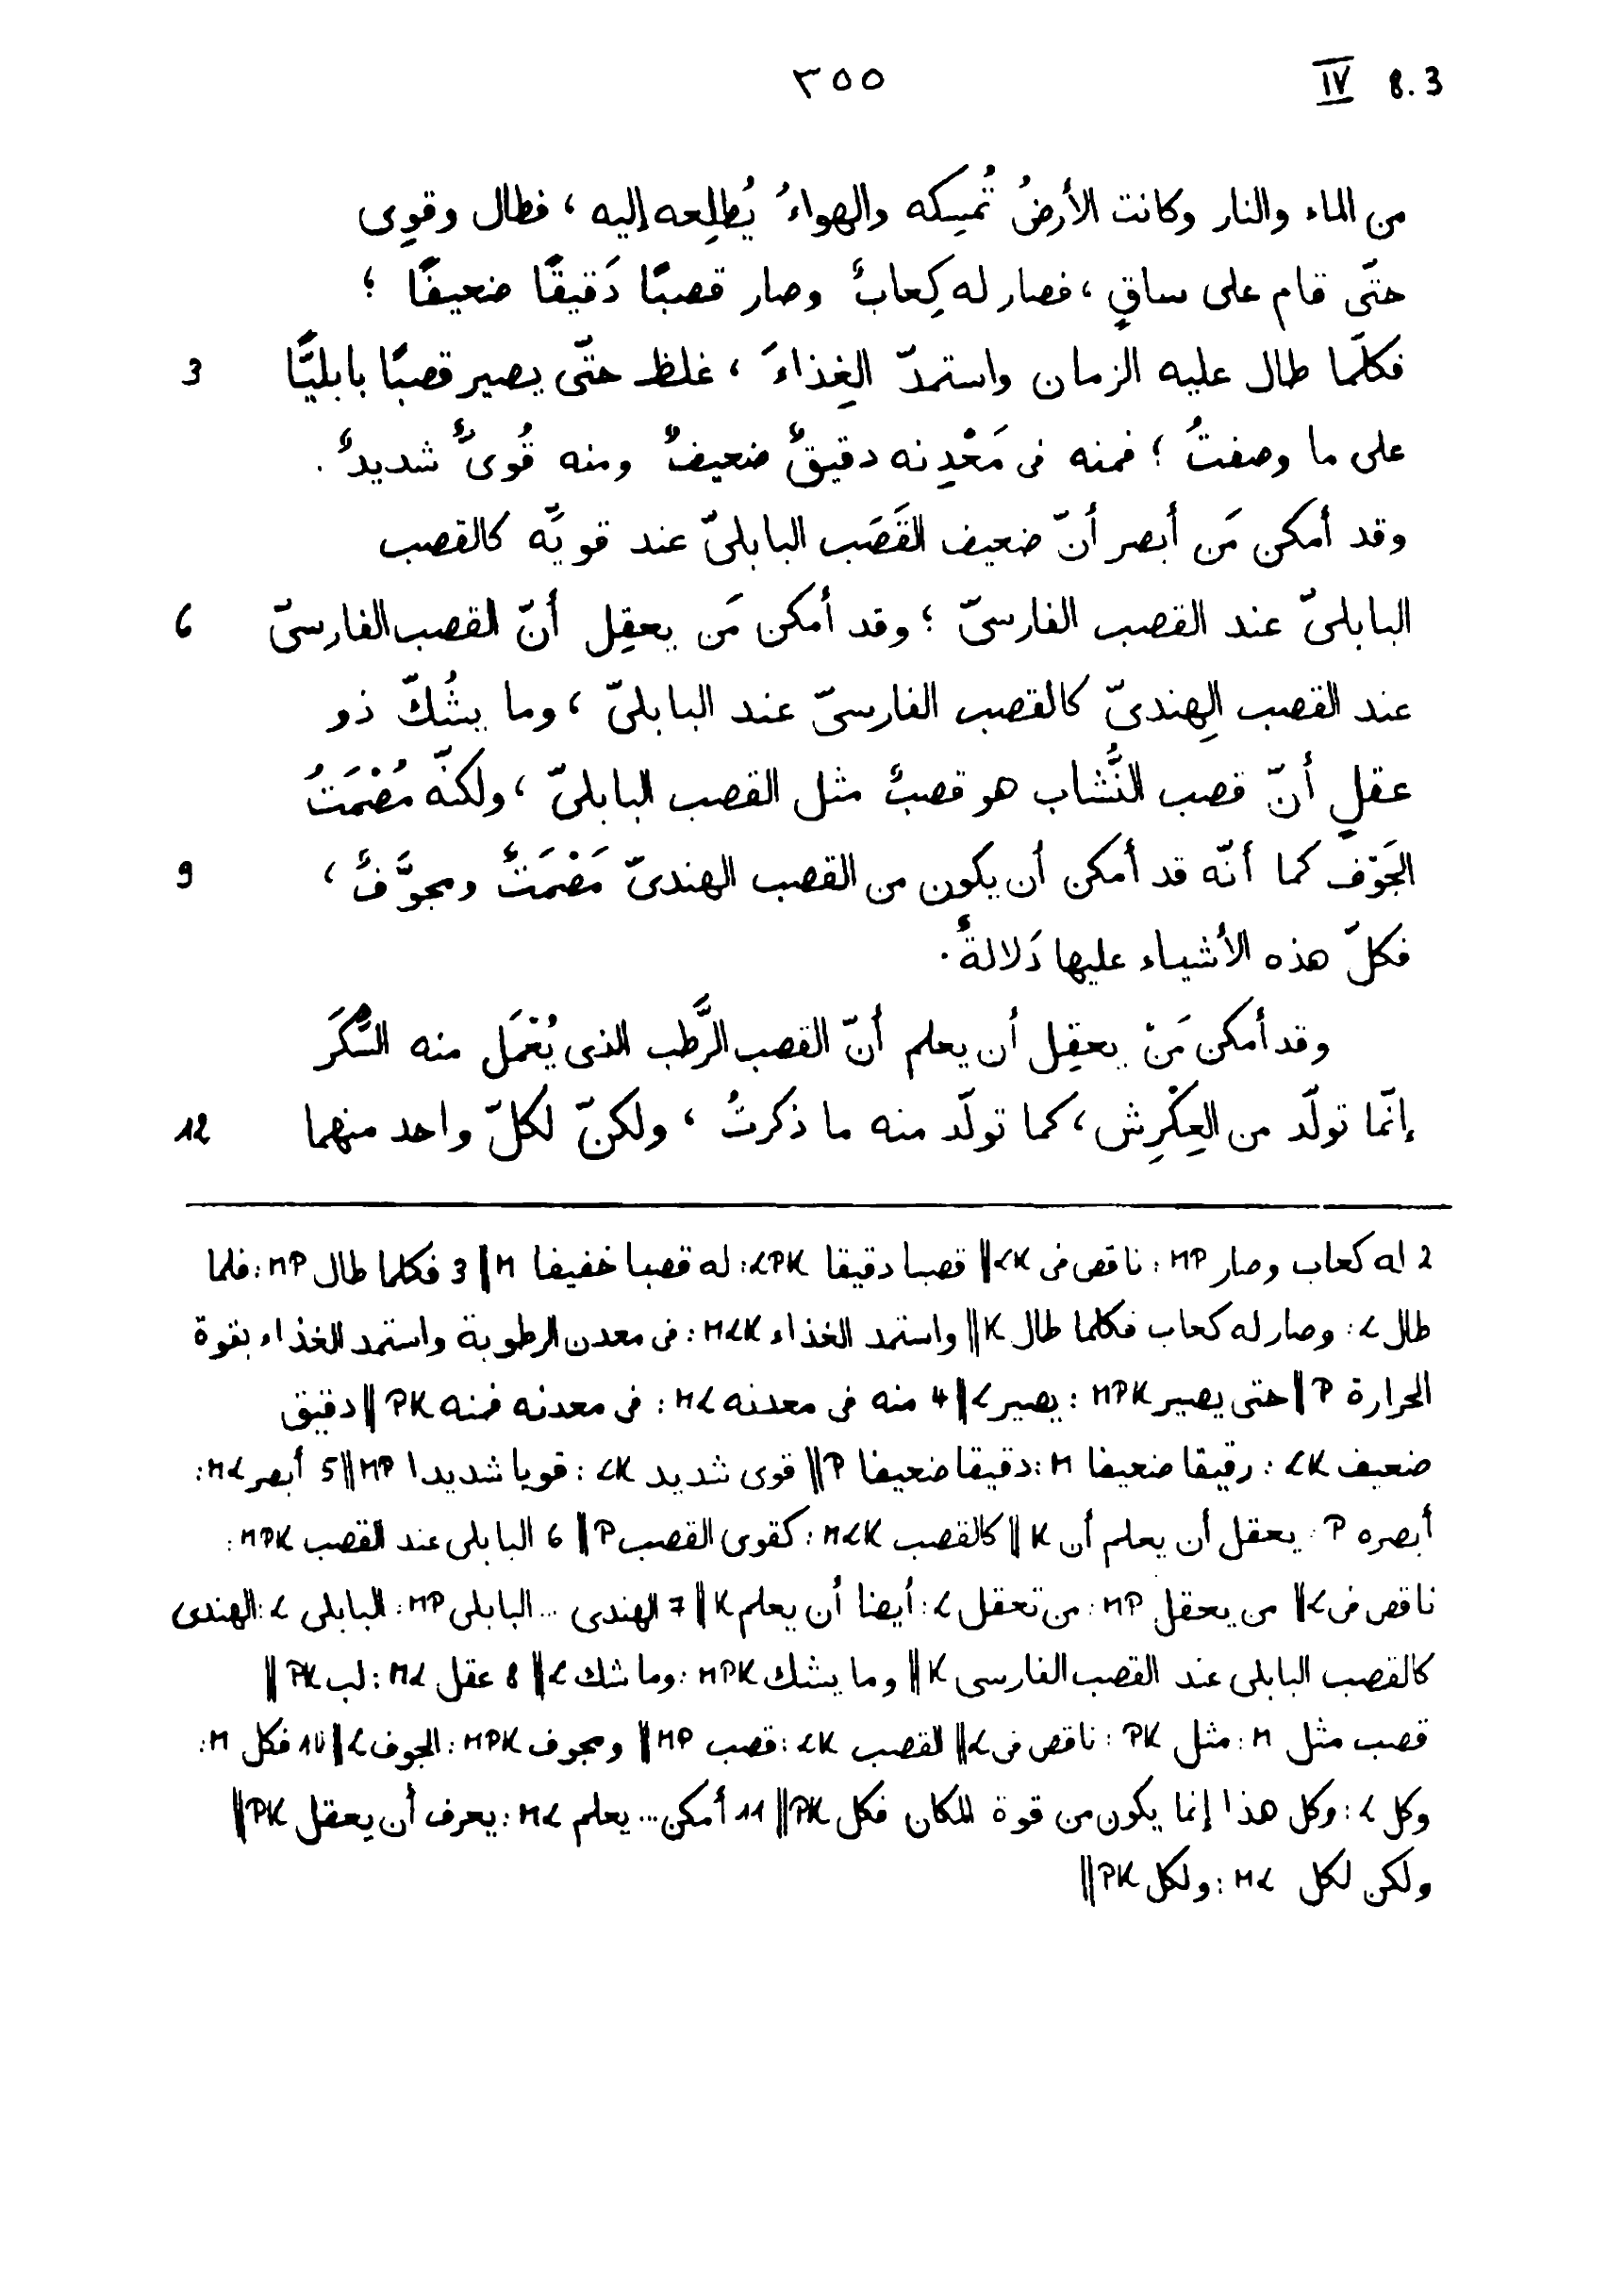 IV 8.3 ٣٥٥
من الماء والنار وكانت الأرضُ تُمسِكه والهواءُ يُطلِعه إليه ، فطال وقوِى
حتّى قام على ساقٍ ، فصار له كِعابٌ وصار قصبًا دَقيقًا ضعيفًا ؛
فكلّما طال عليه الزمان واستمدّ الغِذاءَ ، غلظ حتّى يصير قصبًا بابليًّا 3
على ما وصفتُ ؛ فمنه فى مَعْدِنه دقيقٌ ضعيفٌ ومنه قُوىٌّ شديدٌ .
وقد أمكن مَن أبصر أنّ ضعيف القَصَب البابلىّ عند قويّه كالقصب
البابلىّ عند القصب الفارسىّ ؛ وقد أمكن مَن يعقِل أنّ القصب الفارسىّ 6
عند القصب الهِندىّ كالقصب الفارسىّ عند البابلىّ ، وما يشُكّ ذو
عقلٍ أنّ قصب النُّشاب هو قصبٌ مثل القصب البابلىّ ، ولكنّه مُصْمَتُ
الجَوْف كما أنّه قد أمكن أن يكون من القصب الهندىّ مَصْمَتٌ ومجوَّفٌ ، 9
فكلّ هذه الأشياء عليها دَلالةٌ .
وقد أمكن مَنْ يعقِل أن يعلم أنّ القصب الرَّطب الذى يُعْمَل منه السُّكَّر
إنّما تولّد من العِكْرِش ، كما تولّد منه ما ذكرتُ ، ولكنّ لكلّ واحد منهما 12
2 له كعاب وصار MP : ناقص فى LK || قصبا دقيقا LPK : له قصبا خفيفا M || 3 فكلما طال MP : فلما
طال L : وصار له كعاب فكلما طال K || واستمد الغذاء MLK : فى معدن الرطوبة واستمد الغذاء بقوة
الحرارة P || حتى يصير MPK : يصير L || 4 منه فى معدنه ML : فى معدنه فمنه PK || دقيق
ضعيف LK : رقيقا ضعيفا M : دقيقا ضعيفا P || قوى شديد LK : قويا شديدا MP || 5 أبصر ML :
أبصره P : يعقل أن يعلم أن K || كالقصب MLK : كقوى القصب P || 6 البابلى عند القصب MPK :
ناقص فى L || من يعقل MP : من تعقل L : أيضا أن يعلم K || 7 الهندى ... البابلى MP : البابلى L : الهندى
كالقصب البابلى عند القصب الفارسى K || وما يشك MPK : وما شك L || 8 عقل ML : لب PK ||
قصب مثل M : مثل PK : ناقص فى L || القصب LK : قصب MP || ومجوف MPK : الجوف L || 10 فكل M :
وكل L : وكل هذا إنما يكون من قوة المكان فكل PK || 11 أمكن ... يعلم ML : يعرف أن يعقل PK ||
ولكن لكل ML : ولكل PK ||